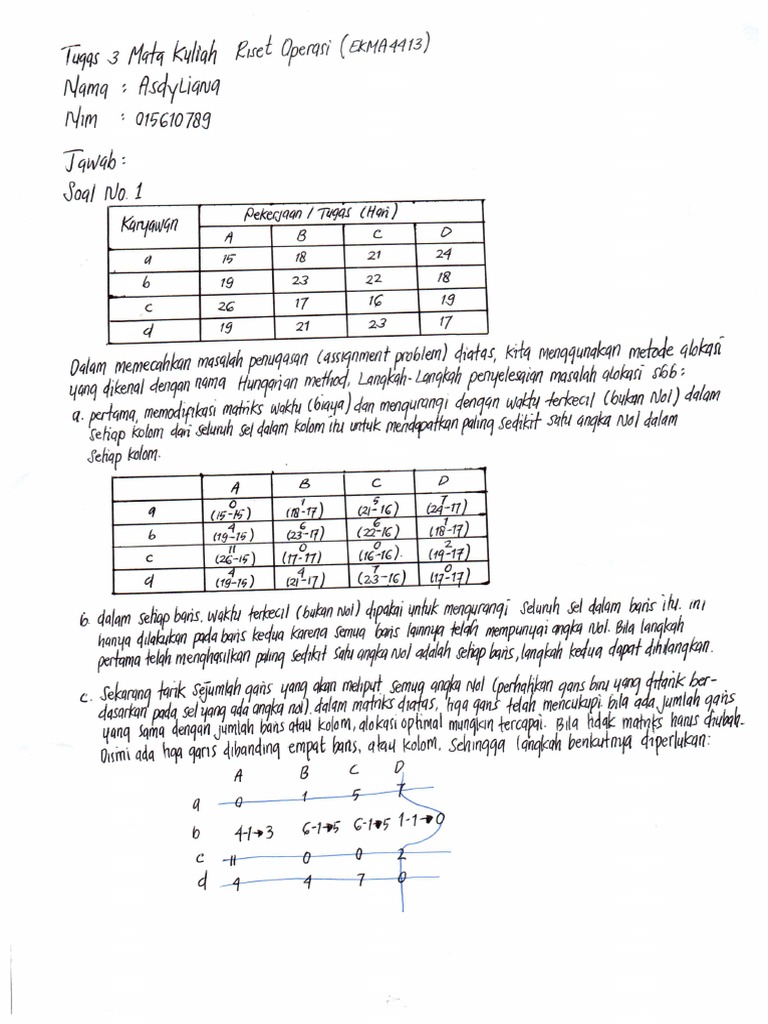 Tugas 3 Mata Kuliah Riset Operasi (EKMA4413)
Nama : Asdyliana
Nim : 015610789
Jawab :
Soal No. 1
Karyawan Pekerjaan / Tugas (Hari)
A B C D
a 15 18 21 24
b 19 23 22 18
c 26 17 16 19
d 19 21 23 17
Dalam memecahkan masalah penugasan (assignment problem) diatas, kita menggunakan metode alokasi
yang dikenal dengan nama Hungarian method, Langkah-Langkah penyelesaian masalah alokasi sbb:
a. pertama, memodifikasi matriks waktu (biaya) dan mengurangi dengan waktu terkecil (bukan Nol) dalam
setiap kolom dari seluruh sel dalam kolom itu untuk mendapatkan paling sedikit satu angka Nol dalam
setiap kolom.
A B C D
0 1 5 7
a (15-15) (18-17) (21-16) (24-17)
4 6 6 1
b (19-15) (23-17) (22-16) (18-17)
11 0 0 2
c (26-15) (17-17) (16-16). (19-17)
4 4 7 0
d (19-15) (21-17) (23-16) (17-17)
b. dalam setiap baris, waktu terkecil (bukan Nol) dipakai untuk mengurangi seluruh sel dalam baris itu. ini
hanya dilakukan pada baris kedua karena semua baris lainnya telah mempunyai angka Nol. Bila langkah
pertama telah menghasilkan paling sedikit satu angka Nol adalah setiap baris, langkah kedua dapat dihilangkan.
c. Sekarang tarik sejumlah garis yang akan meliput semua angka nol (perhatikan garis biru yang ditarik ber-
dasarkan pada sel yang ada angka nol). dalam matriks diatas, tiga garis telah mencukupi. bila ada jumlah garis
yang sama dengan jumlah baris atau kolom, alokasi optimal mungkin tercapai. Bila tidak matriks harus diubah.
Disini ada tiga garis dibanding empat baris, atau kolom. Sehingga langkah berikutnya diperlukan:
A B C D
a 0 1 5 7
b 4-1→3 6-1→5 6-1→5 1-1→0
c 11 0 0 2
d 4 4 7 0